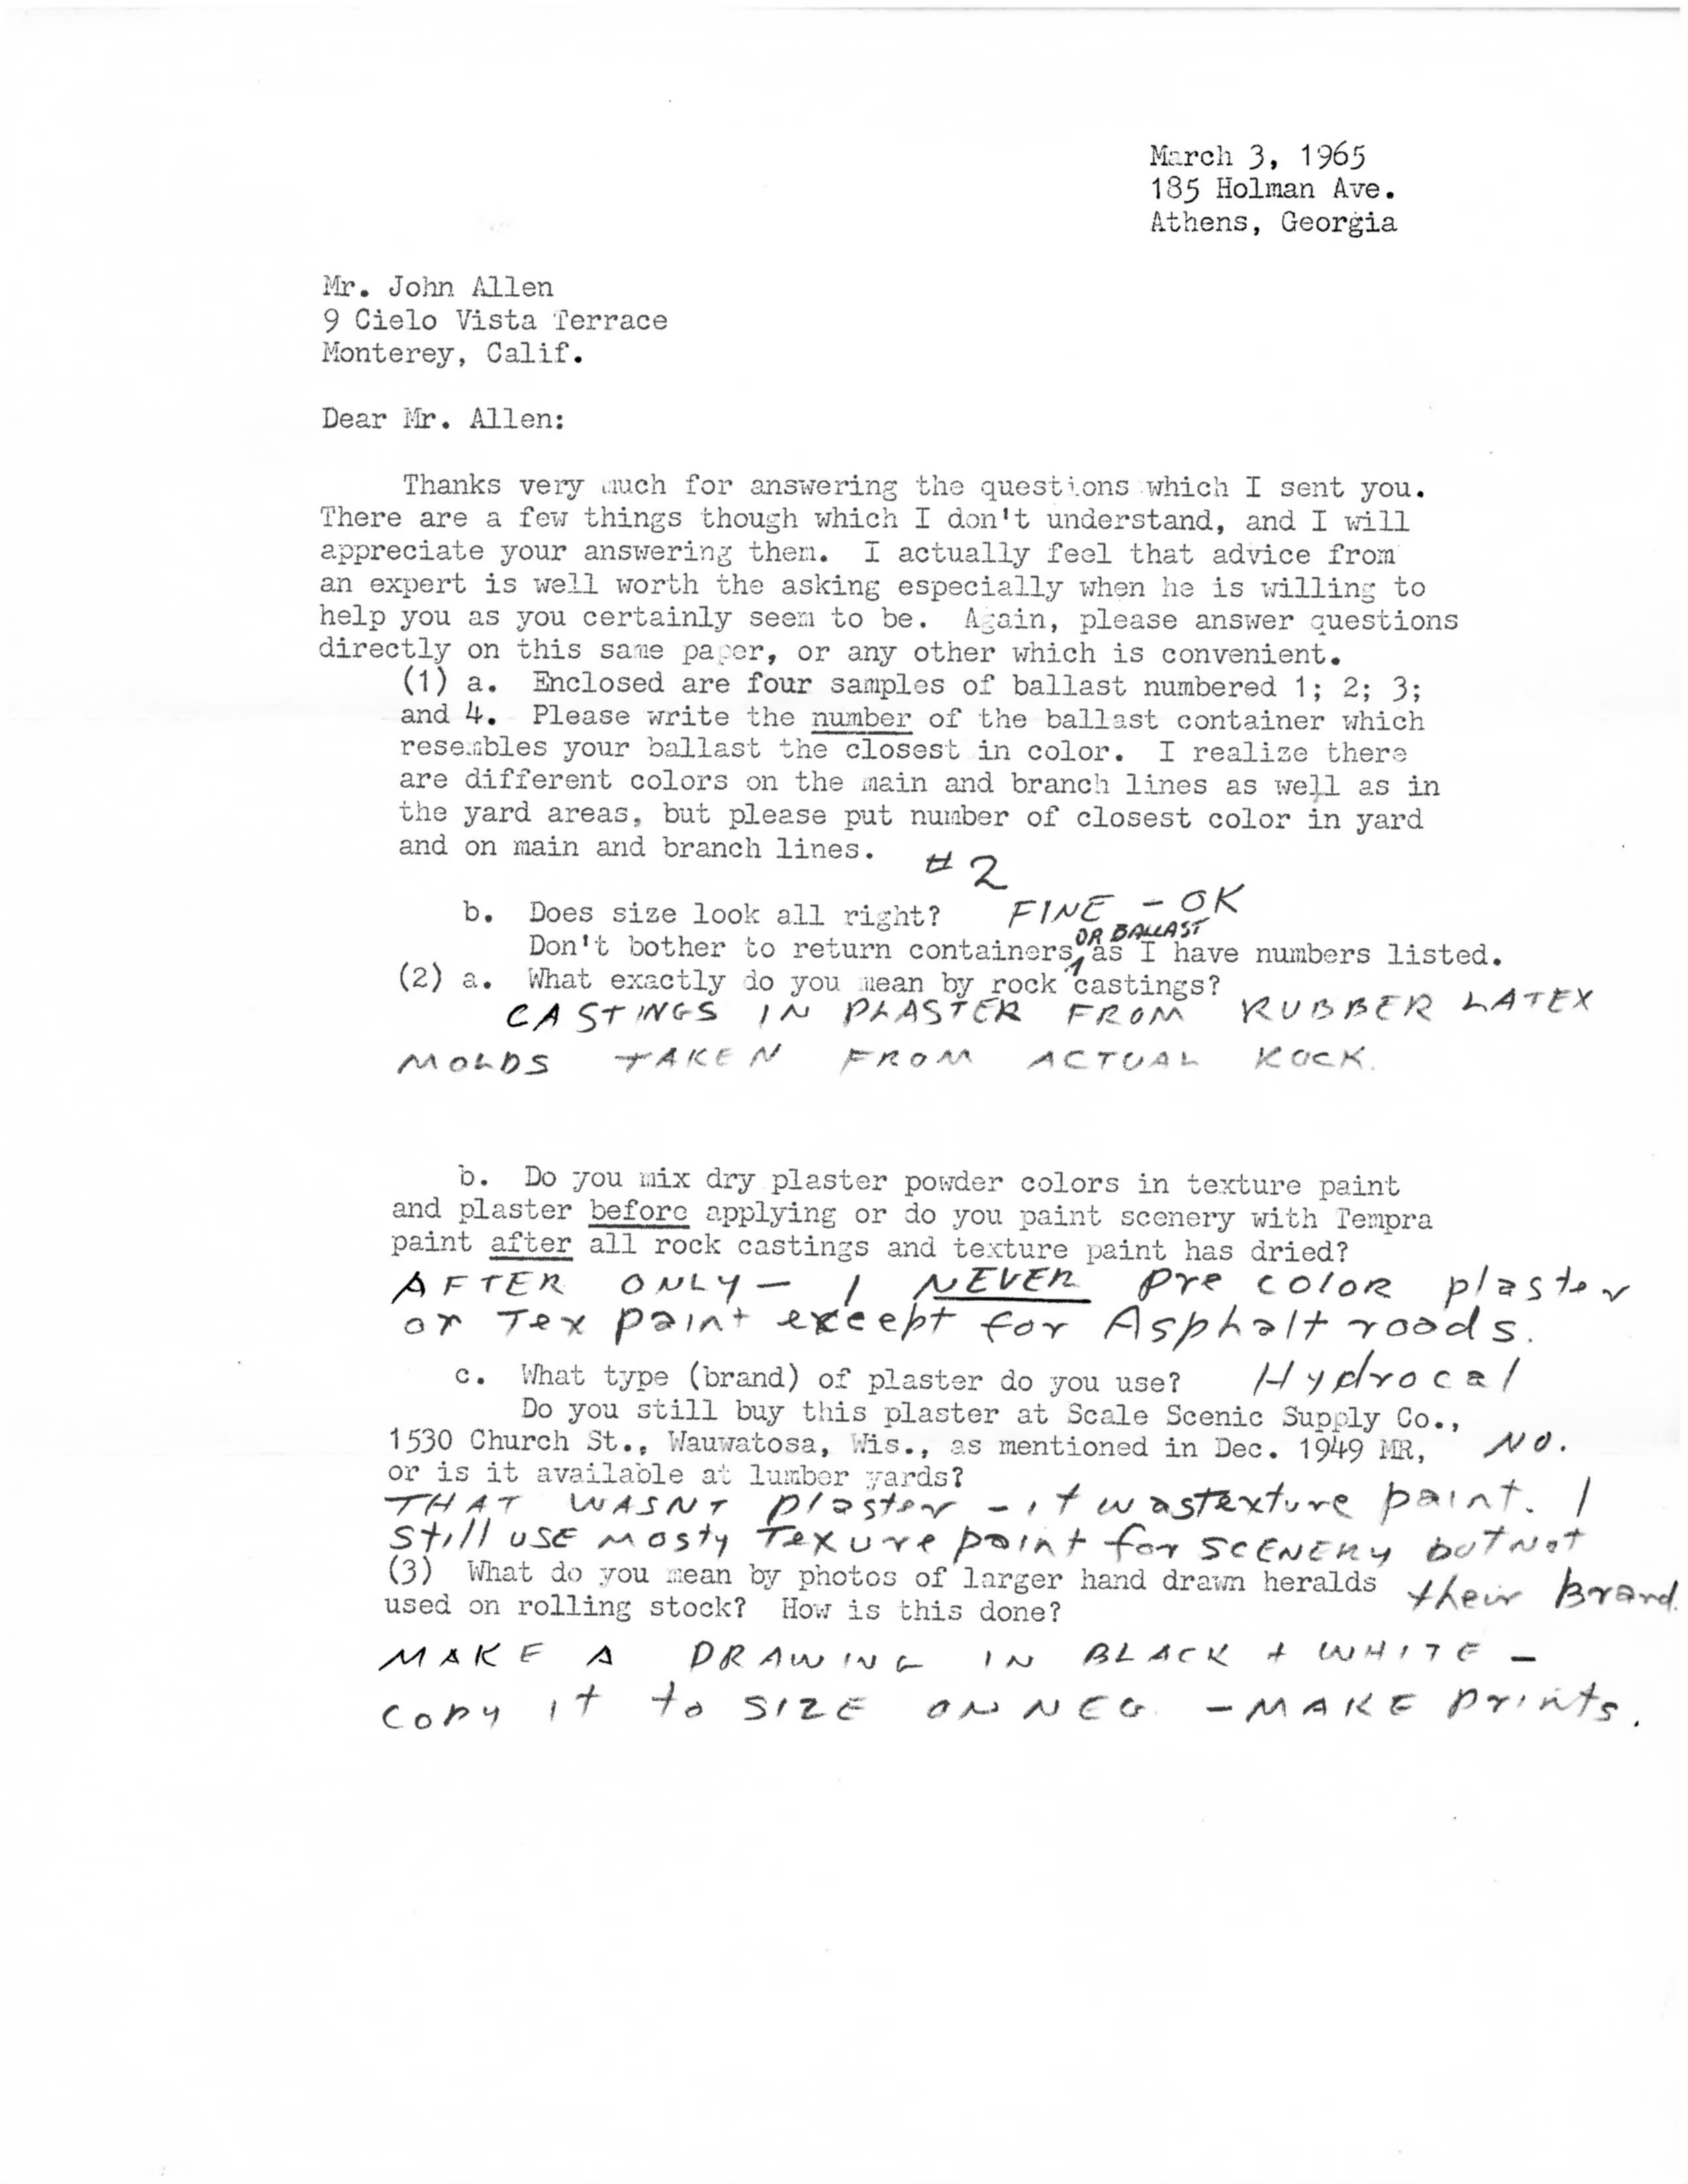 March 3, 1965
185 Holman Ave.
Athens, Georgia
Mr. John Allen
9 Cielo Vista Terrace
Monterey, Calif.
Dear Mr. Allen:
Thanks very much for answering the questions which I sent you.
There are a few things though which I don't understand, and I will
appreciate your answering them. I actually feel that advice from
an expert is well worth the asking especially when he is willing to
help you as you certainly seem to be. Again, please answer questions
directly on this same paper, or any other which is convenient.
(1) a. Enclosed are four samples of ballast numbered 1; 2; 3;
and 4. Please write the number of the ballast container which
resembles your ballast the closest in color. I realize there
are different colors on the main and branch lines as well as in
the yard areas, but please put number of closest color in yard
and on main and branch lines. # 2
b. Does size look all right? FINE - OK
OR BALLAST
Don't bother to return containers, as I have numbers listed.
(2) a. What exactly do you mean by rock castings?
CASTINGS IN PLASTER FROM RUBBER LATEX
MOLDS TAKEN FROM ACTUAL ROCK.
b. Do you mix dry plaster powder colors in texture paint
and plaster before applying or do you paint scenery with Tempra
paint after all rock castings and texture paint has dried?
AFTER ONLY - I NEVER pre color plaster
or Tex paint except for Asphalt roads.
c. What type (brand) of plaster do you use? Hydrocal
Do you still buy this plaster at Scale Scenic Supply Co.,
1530 Church St., Wauwatosa, Wis., as mentioned in Dec. 1949 MR, NO.
or is it available at lumber yards?
THAT WASNT plaster - it was texture paint. I
still USE mosty Texure paint for SCENERY but not
their Brand.
(3) What do you mean by photos of larger hand drawn heralds
used on rolling stock? How is this done?
MAKE A DRAWING IN BLACK + WHITE -
COPY it to SIZE ON NEG. - MAKE prints.